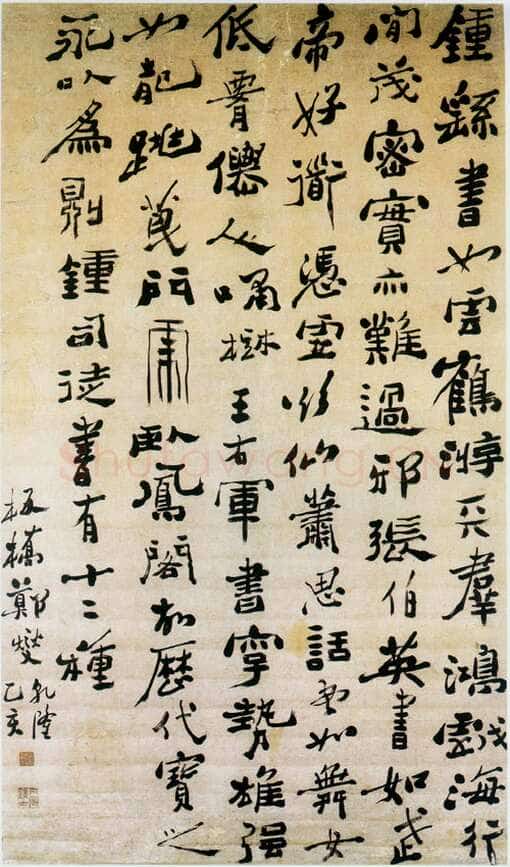 鍾繇書如雲鶴游天羣鴻戲海行
間茂密實亦難過邪張伯英書如武
帝好衜憑虛欲仙蕭思話書如舞女
低腰僊人嘯樹王右軍書字勢雄强
如龍跳天門虎臥鳳閣故歷代寶之
永以爲則鍾司徒書有十二種
板橋鄭燮
乾隆
乙亥